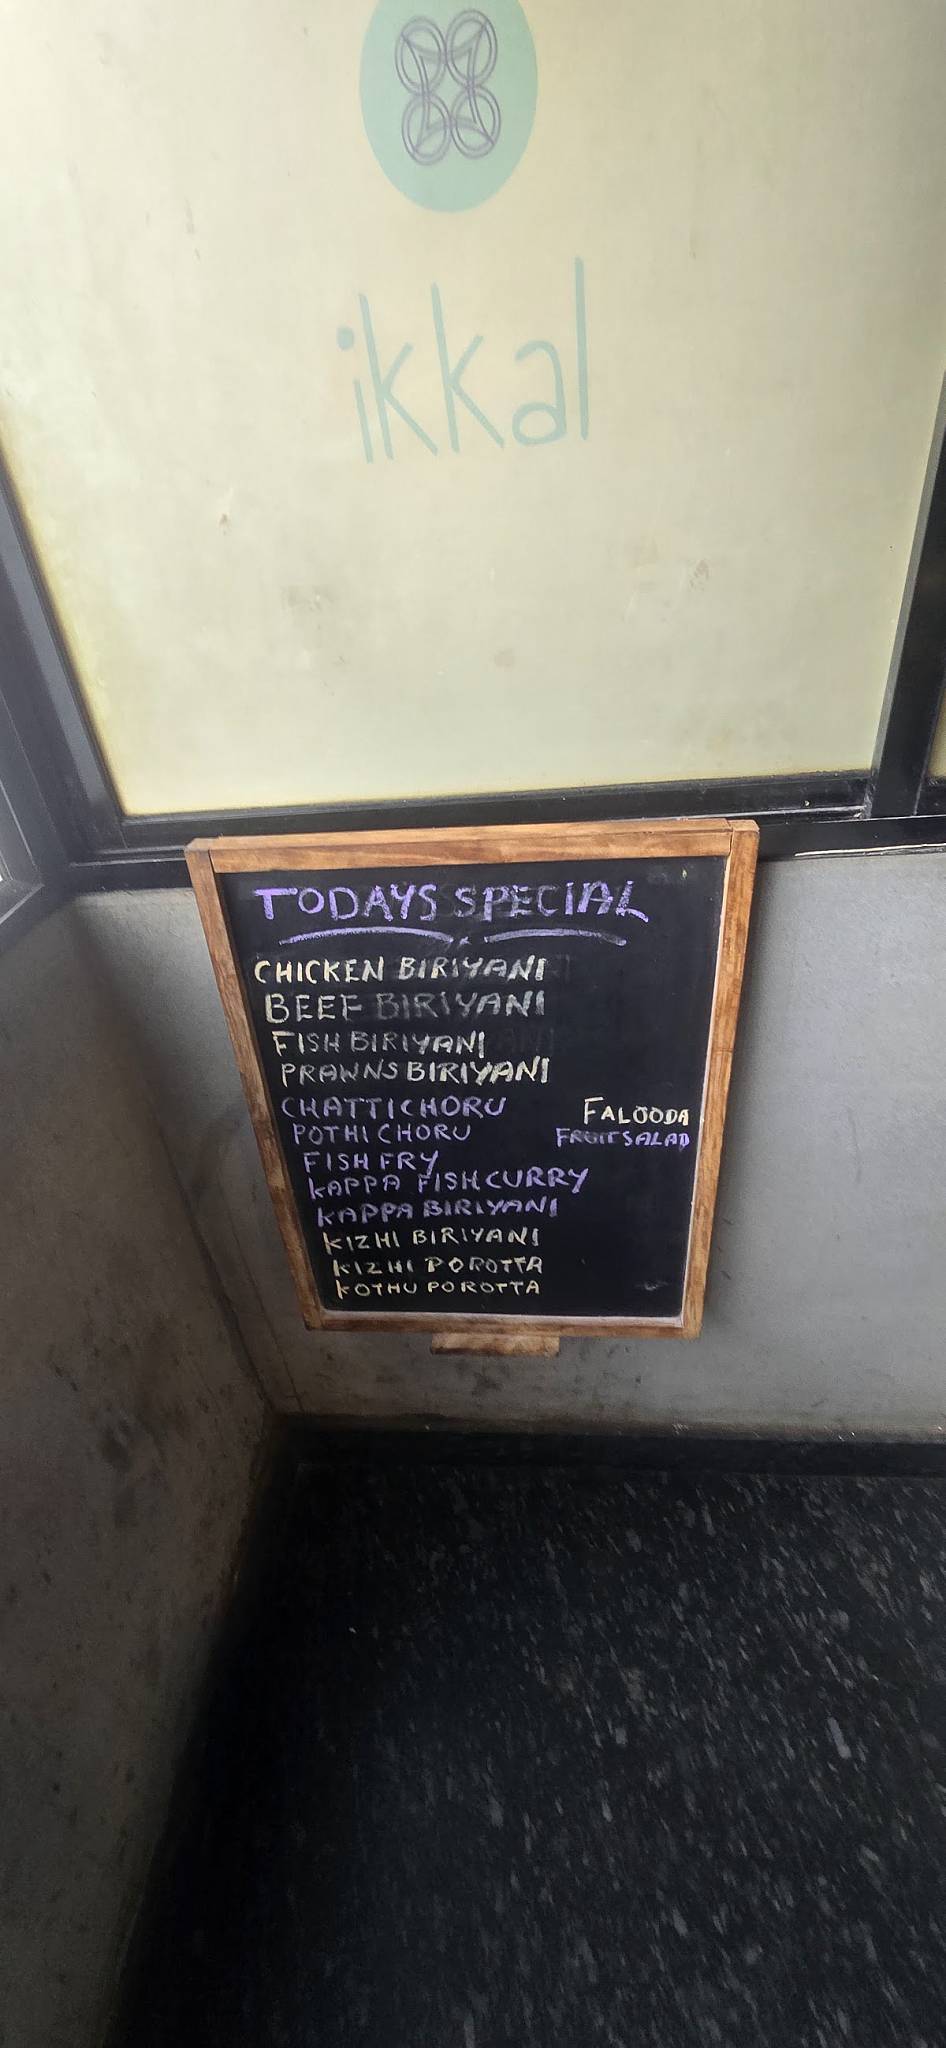 ikkal
TODAYS SPECIAL
CHICKEN BIRIYANI
BEEF BIRIYANI
FISH BIRIYANI
PRAWNS BIRIYANI
CHATTICHORU
POTHI CHORU
FISH FRY
KAPPA FISHCURRY
KAPPA BIRIYANI
KIZHI BIRIYANI
KIZHI POROTTA
KOTHU POROTTA
FALOODA
FRUIT SALAD